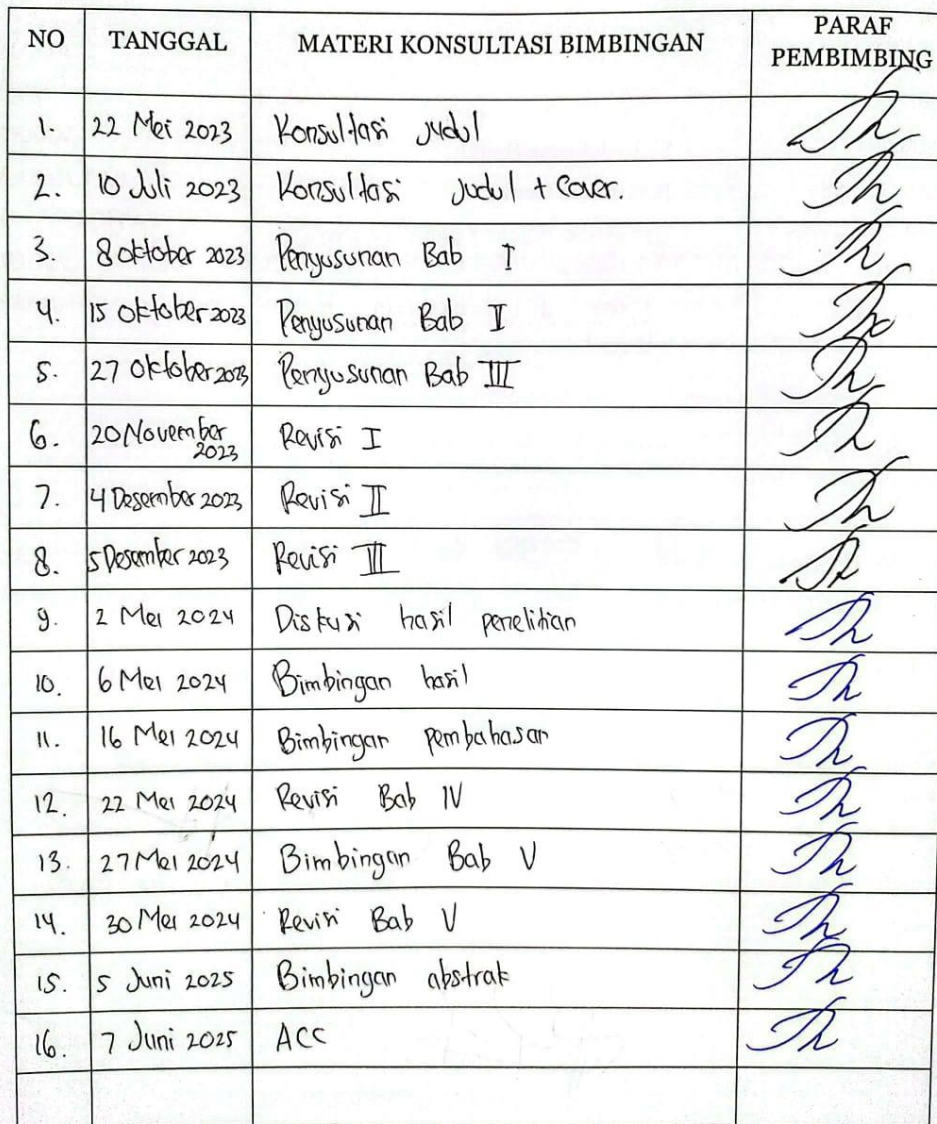 NO TANGGAL MATERI KONSULTASI BIMBINGAN PARAF PEMBIMBING
1. 22 Mei 2023 Konsultasi Judul
2. 10 Juli 2023 Konsultasi Judul + Cover.
3. 8 Oktober 2023 Penyusunan Bab I
4. 15 Oktober 2023 Penyusunan Bab II
5. 27 Oktober 2023 Penyusunan Bab III
6. 20 November 2023 Revisi I
7. 4 Desember 2023 Revisi II
8. 5 Desember 2023 Revisi III
9. 2 Mei 2024 Diskusi hasil penelitian
10. 6 Mei 2024 Bimbingan hasil
11. 16 Mei 2024 Bimbingan pembahasan
12. 22 Mei 2024 Revisi Bab IV
13. 27 Mei 2024 Bimbingan Bab V
14. 30 Mei 2024 Revisi Bab V
15. 5 Juni 2025 Bimbingan abstrak
16. 7 Juni 2025 ACC